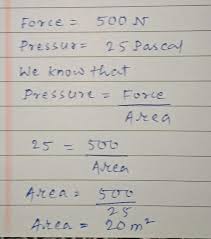 Force = 500 N
Pressur= 25 Pascal
We know that
Pressure = Force
Area
25 = 500
Area
Area = 500
25
Area = 20 m²